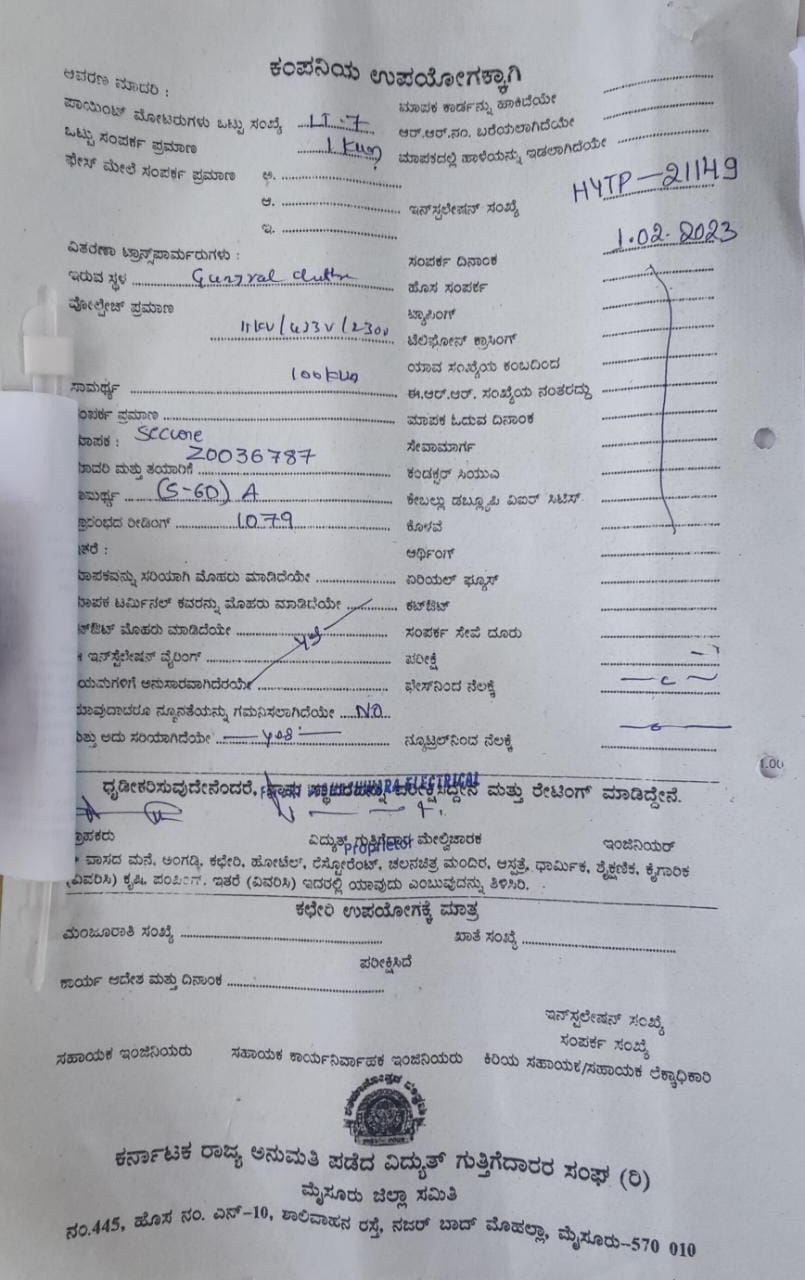 ಕಂಪನಿಯ ಉಪಯೋಗಕ್ಕಾಗಿ
ಆವರಣ ಮಾದರಿ :
ಪಾಯಿಂಟ್ ಮೋಟರುಗಳು ಒಟ್ಟು ಸಂಖ್ಯೆ LT-7
ಒಟ್ಟು ಸಂಪರ್ಕ ಪ್ರಮಾಣ 1 KW
ಫೇಸ್ ಮೇಲೆ ಸಂಪರ್ಕ ಪ್ರಮಾಣ ಅ.
ಆ.
ಇ.
ವಿತರಣಾ ಟ್ರಾನ್ಸ್‌ಪಾರ್ಮರುಗಳು :
ಇರುವ ಸ್ಥಳ
ವೋಲ್ಟೇಜ್ ಪ್ರಮಾಣ
11KV/433V/230V
ಸಾಮರ್ಥ್ಯ 100KVA
ಸಂಪರ್ಕ ಪ್ರಮಾಣ
ಮಾಪಕ : Secure
Z0036787
ಮಾದರಿ ಮತ್ತು ತಯಾರಿಕೆ
ಸಾಮರ್ಥ್ಯ (5-60) A
ಪ್ರಾರಂಭದ ರೀಡಿಂಗ್ 1079
ಇತರೆ :
ಮಾಪಕವನ್ನು ಸರಿಯಾಗಿ ಮೊಹರು ಮಾಡಿದೆಯೇ
ಮಾಪಕ ಟರ್ಮಿನಲ್ ಕವರನ್ನು ಮೊಹರು ಮಾಡಿದೆಯೇ
ಕಟ್‌ಔಟ್ ಮೊಹರು ಮಾಡಿದೆಯೇ yes
ಇನ್‌ಸ್ಟಲೇಷನ್ ವೈರಿಂಗ್
ನಿಯಮಗಳಿಗೆ ಅನುಸಾರವಾಗಿದೆಯೇ
ಯಾವುದಾದರೂ ನ್ಯೂನತೆಯನ್ನು ಗಮನಿಸಲಾಗಿದೆಯೇ NO
ಮತ್ತು ಅದು ಸರಿಯಾಗಿದೆಯೇ yes
ಮಾಪಕ ಕಾರ್ಡನ್ನು ಹಾಕಿದೆಯೇ
ಆರ್.ಆರ್.ನಂ. ಬರೆಯಲಾಗಿದೆಯೇ
ಮಾಪಕದಲ್ಲಿ ಹಾಳೆಯನ್ನು ಇಡಲಾಗಿದೆಯೇ
ಇನ್‌ಸ್ಟಲೇಷನ್ ಸಂಖ್ಯೆ HYTP-21149
ಸಂಪರ್ಕ ದಿನಾಂಕ 1.02.2023
ಹೊಸ ಸಂಪರ್ಕ
ಟ್ಯಾಪಿಂಗ್
ಟೆಲಿಫೋನ್ ಕ್ರಾಸಿಂಗ್
ಯಾವ ಸಂಖ್ಯೆಯ ಕಂಬದಿಂದ
ಈ.ಆರ್.ಆರ್. ಸಂಖ್ಯೆಯ ನಂತರದ್ದು
ಮಾಪಕ ಓದುವ ದಿನಾಂಕ
ಸೇವಾಮಾರ್ಗ
ಕಂಡಕ್ಟರ್ ಸಿಯುಎ
ಕೇಬಲ್ಲು ಡಬ್ಲ್ಯೂಪಿ ವಿಐಆರ್ ಸಿಟಿಸ್
ಕೊಳವೆ
ಆರ್ಥಿಂಗ್
ಏರಿಯಲ್ ಫ್ಯೂಸ್
ಕಟ್‌ಔಟ್
ಸಂಪರ್ಕ ಸೇವೆ ದೂರು
ಪರೀಕ್ಷೆ
ಫೇಸ್‌ನಿಂದ ನೆಲಕ್ಕೆ
ನ್ಯೂಟ್ರಲ್‌ನಿಂದ ನೆಲಕ್ಕೆ
1.00
ಧೃಡೀಕರಿಸುವುದೇನೆಂದರೆ, ಪರೀಕ್ಷಿಸಿದ್ದೇನೆ ಮತ್ತು ರೇಟಿಂಗ್ ಮಾಡಿದ್ದೇನೆ.
ELECTRICAL
ಗ್ರಾಹಕರು ವಿದ್ಯುತ್ ಗುತ್ತಿಗೆದಾರ ಮೇಲ್ವಿಚಾರಕ ಇಂಜಿನಿಯರ್
Proprietor
* ವಾಸದ ಮನೆ, ಅಂಗಡಿ, ಕಛೇರಿ, ಹೋಟೆಲ್, ರೆಸ್ಟೋರೆಂಟ್, ಚಲನಚಿತ್ರ ಮಂದಿರ, ಆಸ್ಪತ್ರೆ, ಧಾರ್ಮಿಕ, ಶೈಕ್ಷಣಿಕ, ಕೈಗಾರಿಕ
(ವಿವರಿಸಿ) ಕೃಷಿ, ಪಂಪಿಂಗ್, ಇತರೆ (ವಿವರಿಸಿ) ಇದರಲ್ಲಿ ಯಾವುದು ಎಂಬುವುದನ್ನು ತಿಳಿಸಿರಿ.
ಕಛೇರಿ ಉಪಯೋಗಕ್ಕೆ ಮಾತ್ರ
ಮಂಜೂರಾತಿ ಸಂಖ್ಯೆ ಖಾತೆ ಸಂಖ್ಯೆ
ಪರೀಕ್ಷಿಸಿದೆ
ಕಾರ್ಯ ಆದೇಶ ಮತ್ತು ದಿನಾಂಕ
ಇನ್‌ಸ್ಟಲೇಷನ್ ಸಂಖ್ಯೆ
ಸಂಪರ್ಕ ಸಂಖ್ಯೆ
ಸಹಾಯಕ ಇಂಜಿನಿಯರು ಸಹಾಯಕ ಕಾರ್ಯನಿರ್ವಾಹಕ ಇಂಜಿನಿಯರು ಕಿರಿಯ ಸಹಾಯಕ/ಸಹಾಯಕ ಲೆಕ್ಕಾಧಿಕಾರಿ
ಕರ್ನಾಟಕ ರಾಜ್ಯ ಅನುಮತಿ ಪಡೆದ ವಿದ್ಯುತ್ ಗುತ್ತಿಗೆದಾರರ ಸಂಘ (ರಿ)
ಮೈಸೂರು ಜಿಲ್ಲಾ ಸಮಿತಿ
ನಂ.445, ಹೊಸ ನಂ. ಎನ್-10, ಶಾಲಿವಾಹನ ರಸ್ತೆ, ನಜರ್ ಬಾದ್ ಮೊಹಲ್ಲಾ, ಮೈಸೂರು-570 010